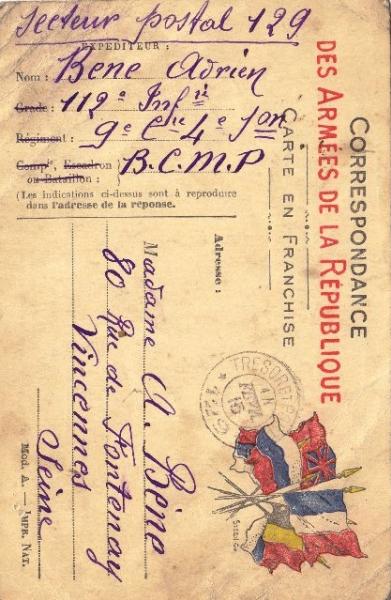 Secteur postal 129
EXPÉDITEUR :
Nom : Bene Adrien
Grade : 112e Infie
Régiment : 9e Cie 4e Son
Compie, Escadron ou Bataillon : B.C.M.P
(Les indications ci-dessus sont à reproduire
dans l'adresse de la réponse.
CORRESPONDANCE
DES ARMÉES DE LA RÉPUBLIQUE
CARTE EN FRANCHISE
TRESOR ET
15
Adresse :
Madame A. Bène
80 Rue de Fontenay
Vincennes
Seine
Mod. A. — IMPR. NAT.